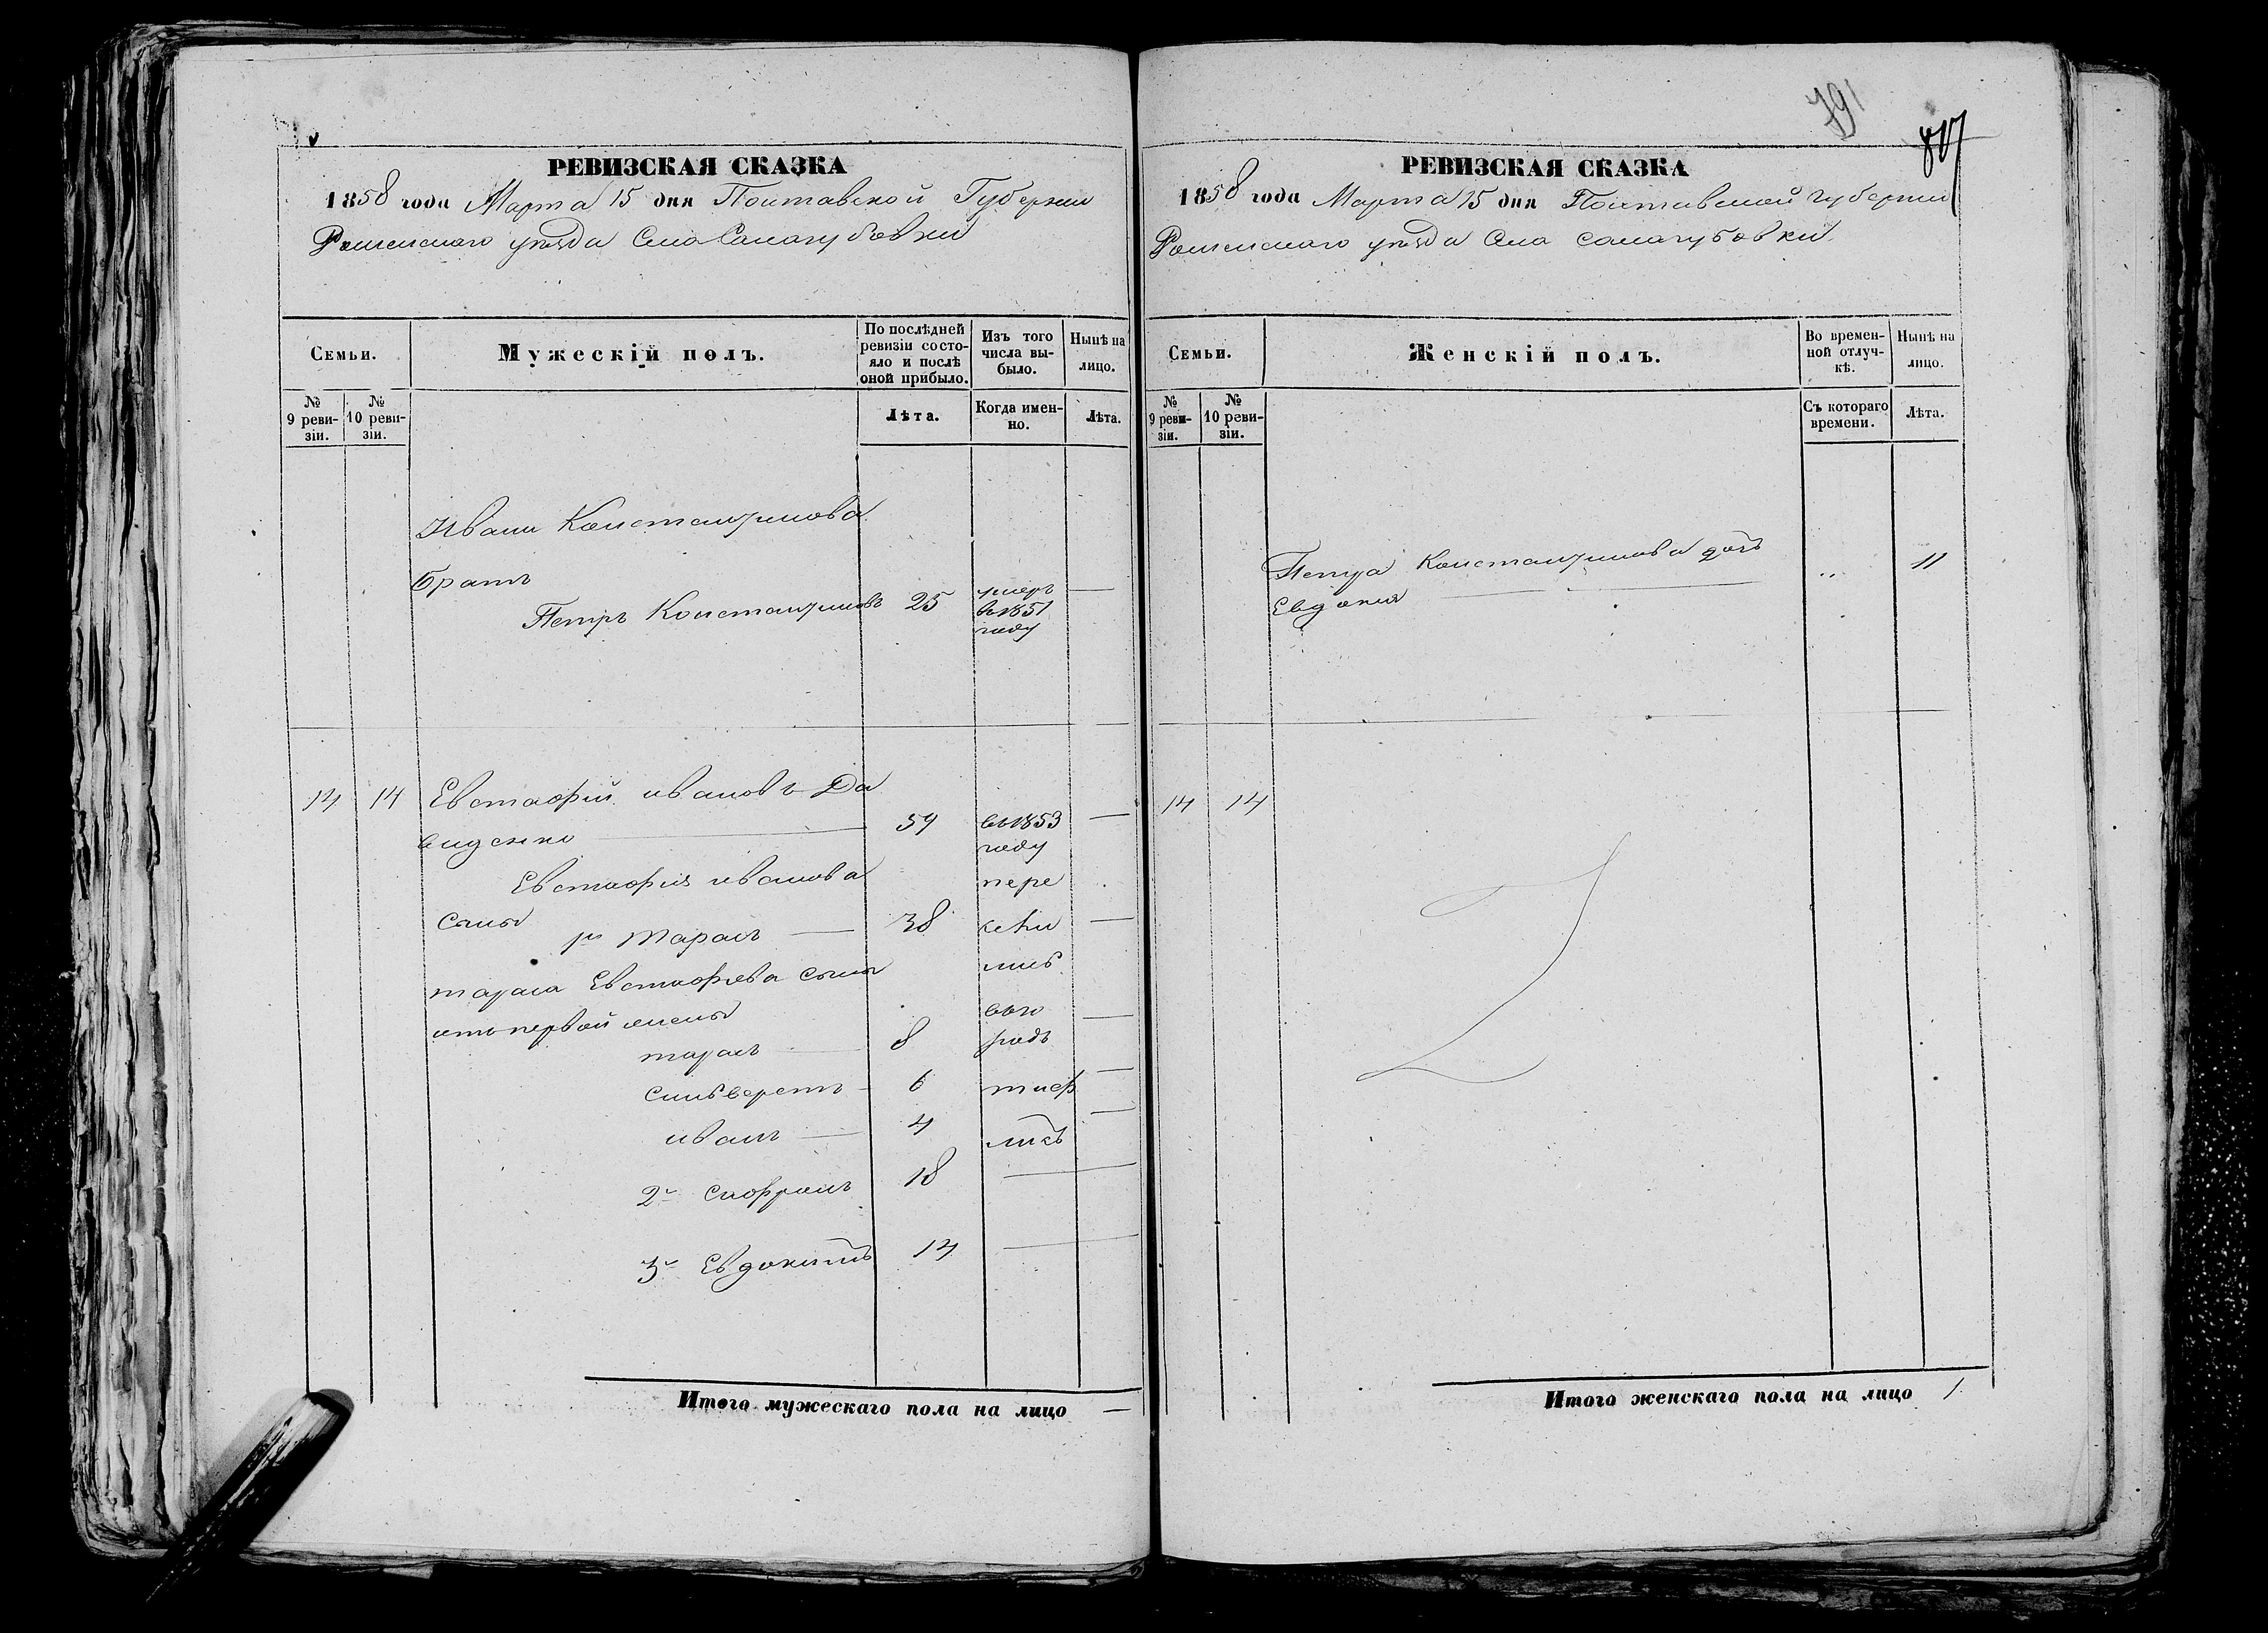 РЕВИЗСКАЯ СКАЗКА
1858 года Марта 15 дня Полтавской Губернии
Роменскаго уезда Села Салогубовки
Семьи.
Мужескій полъ.
По послѣдней ревизіи состояло и послѣ оной прибыло.
Изъ того числа выбыло.
Нынѣ на лицо.
№ 9 ревизіи.
№ 10 ревизіи.
Лѣта.
Когда именно.
Лѣта.
Ивана Константинова
братъ
Петръ Константиновъ 25 умеръ въ 1851 году —
14 14 Евстафій ивановъ Да
виденко — 59 въ 1853 году —
Евстафія иванова пере
сыны 1й тарасъ — 38 сели —
тараса Евстафіева сыны лись
отъ первой жены вго
тарасъ — 8 родъ —
сильверстъ — 6 тиф —
иванъ — 4 лисъ —
2й софронъ 18 —
3й Евдокимъ 14 —
Итого мужескаго пола на лицо —
791
817
РЕВИЗСКАЯ СКАЗКА
1858 года Марта 15 дня Полтавской губернии
Роменскаго уезда Села салогубовки
Семьи.
Женскій полъ.
Во временной отлучкѣ.
Нынѣ на лицо.
№ 9 ревизіи.
№ 10 ревизіи.
Съ котораго времени.
Лѣта.
Петра Константинова дочь
Евдокия — „ 11
14 14
Итого женскаго пола на лицо 1